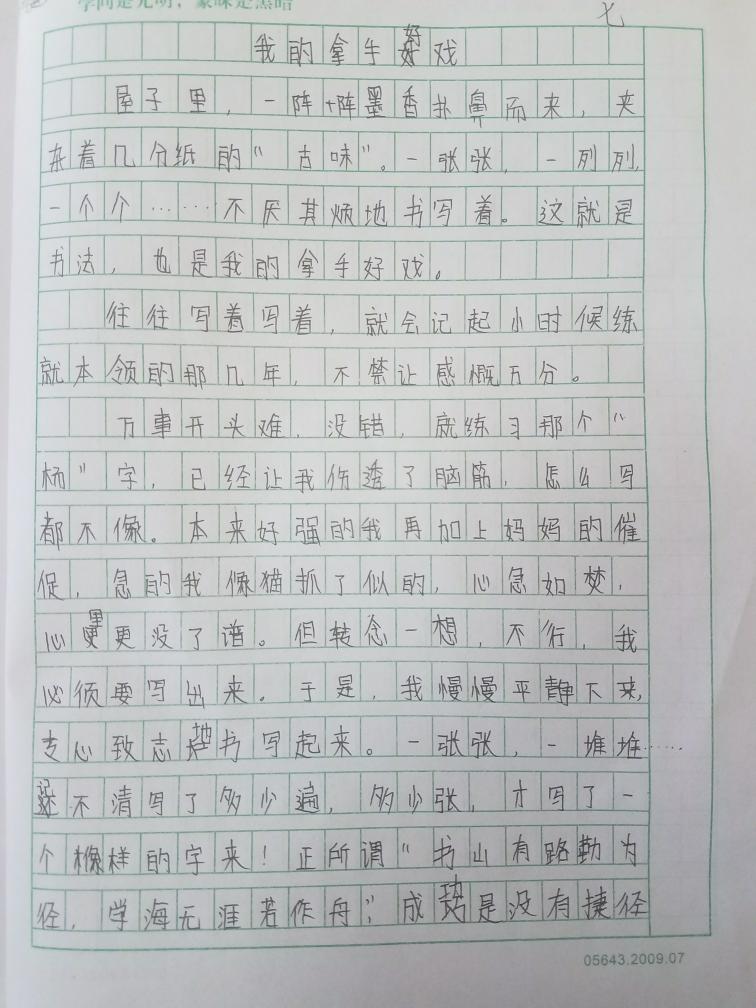 学问是光明，蒙昧是黑暗
七
我的拿手好戏
屋子里，一阵阵墨香扑鼻而来，夹
杂着几分纸的“古味”。一张张，一列列，
一个个……不厌其烦地书写着。这就是
书法，也是我的拿手好戏。
往往写着写着，就会记起小时候练
就本领的那几年，不禁让感慨万分。
万事开头难，没错，就练习那个“
杨”字，已经让我伤透了脑筋，怎么写
都不像。本来好强的我再加上妈妈的催
促，急的我像猫抓了似的，心急如焚，
心里更没了谱。但转念一想，不行，我
必须要写出来。于是，我慢慢平静下来，
专心致志地书写起来。一张张，一堆堆……
记不清写了多少遍，多少张，才写了一
个像样的字来！正所谓“书山有路勤为
径，学海无涯苦作舟”，成功是没有捷径
05643.2009.07